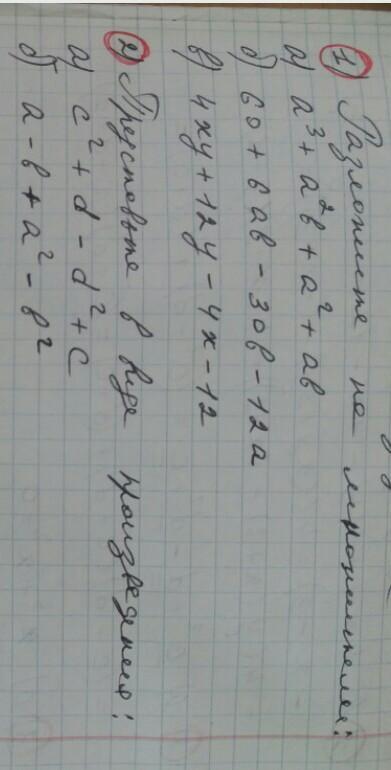 1) Разложите на множители:
а) a³ + a²b + a² + ab
б) 60 + 6ab - 30b - 12a
в) 4xy + 12y - 4x - 12
2) Представьте в виде произведения:
а) c² + d - d² + c
б) a - b + a² - b²